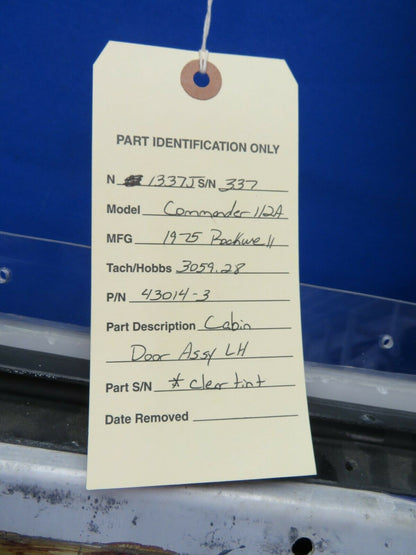 PART IDENTIFICATION ONLY
N 1337J S/N 337
Model Commander 112A
MFG 1975 Rockwell
Tach/Hobbs 3059.28
P/N 43014-3
Part Description Cabin
Door Assy LH
Part S/N * clear tint
Date Removed